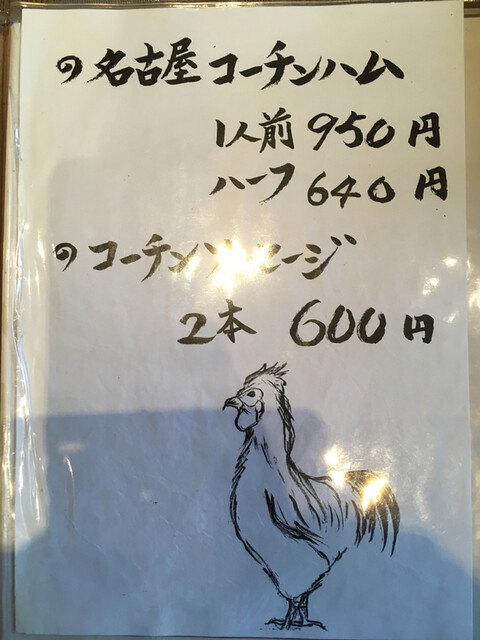 名古屋コーチンハム
1人前 950円
ハーフ 640円
コーチンソーセージ
2本 600円